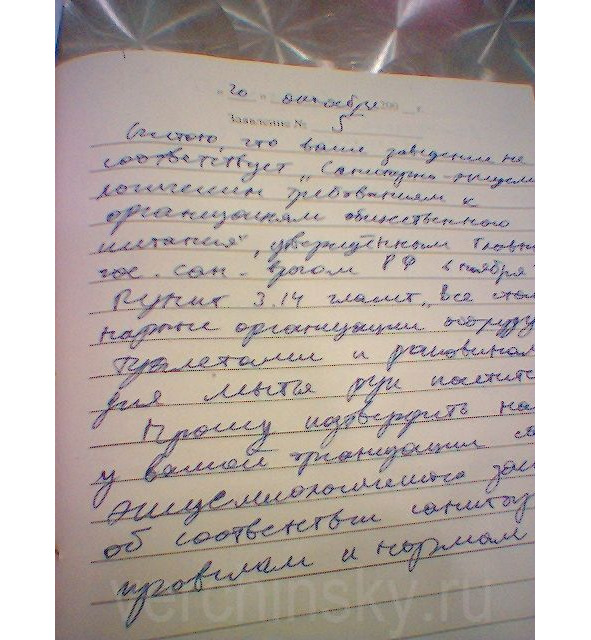 20 октября 200 г.
Заявление № 5
Считаю, что ваше заведение не
соответствует „Санитарно-эпидем
логическим требованиям к
организациям общественного
питания", утверждённым Главн
гос. сан. врачом РФ в ноябре
Пункт 3.14 гласит „Все стац
нарные организации оборуду
туалетами и раковинам
для мытья рук посетите
Прошу подтвердить на
у вашей организации са
эпидемиологического зак
об соответствии санитар
правилам и нормам
verchinsky.ru